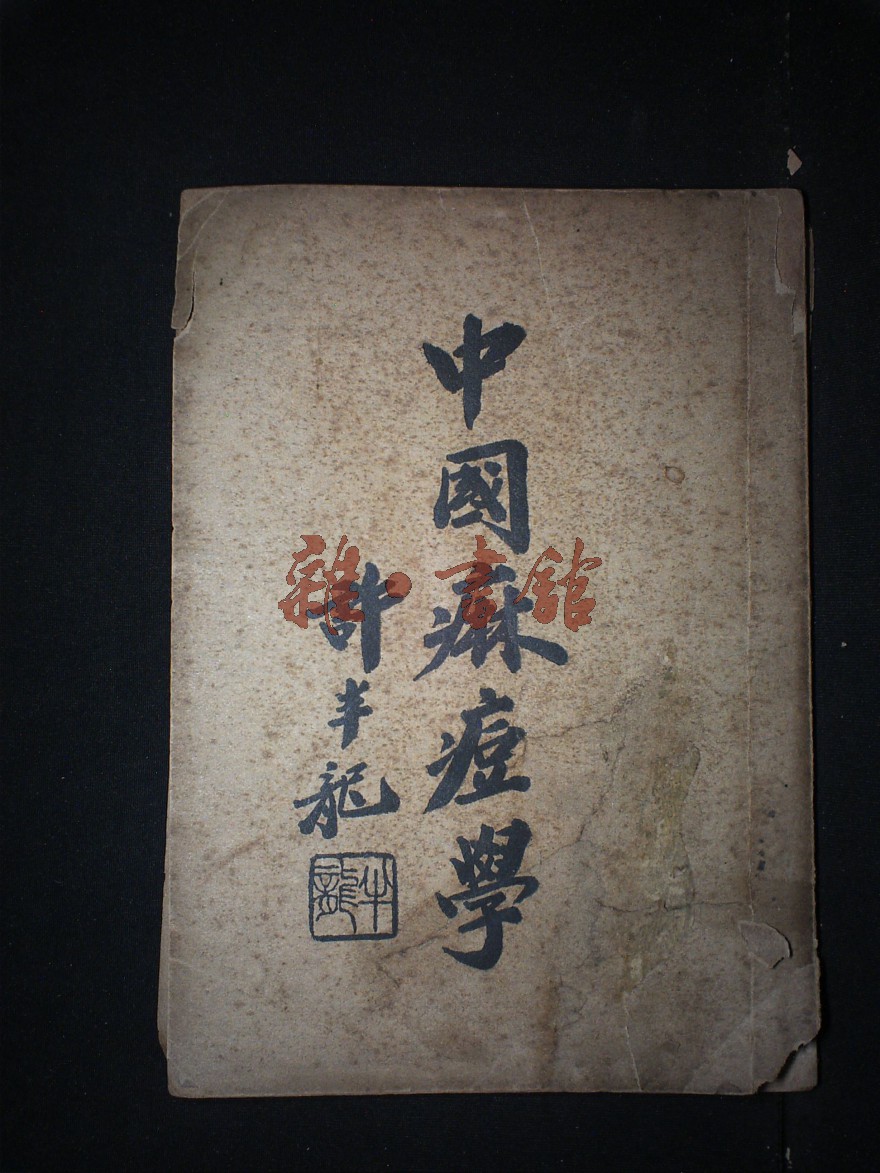 中國痳痘學
許半龍
半龍
雜·書館